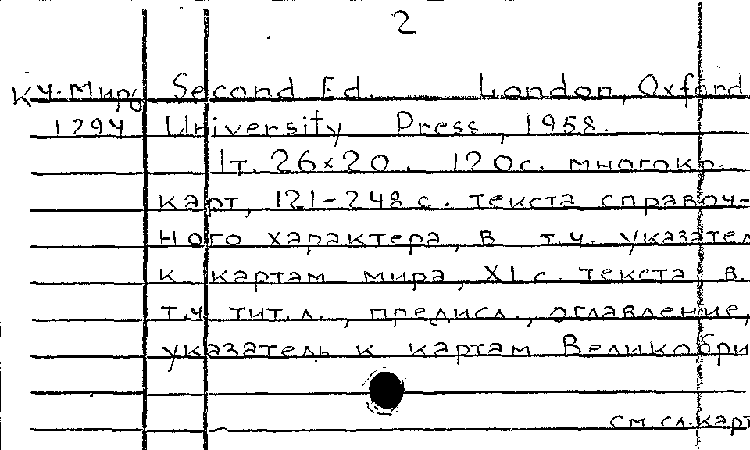 2
КЧ-Мира Second Ed. London, Oxford
1294 University Press, 1958.
1т. 26×20. 120с. многокр.
карт, 121-248 с. текста справоч-
ного характера, в т.ч. указател
к картам мира, XI с. текста в
т.ч тит. л., предисл., оглавление,
указатель к картам Великобри
см. сл. карт